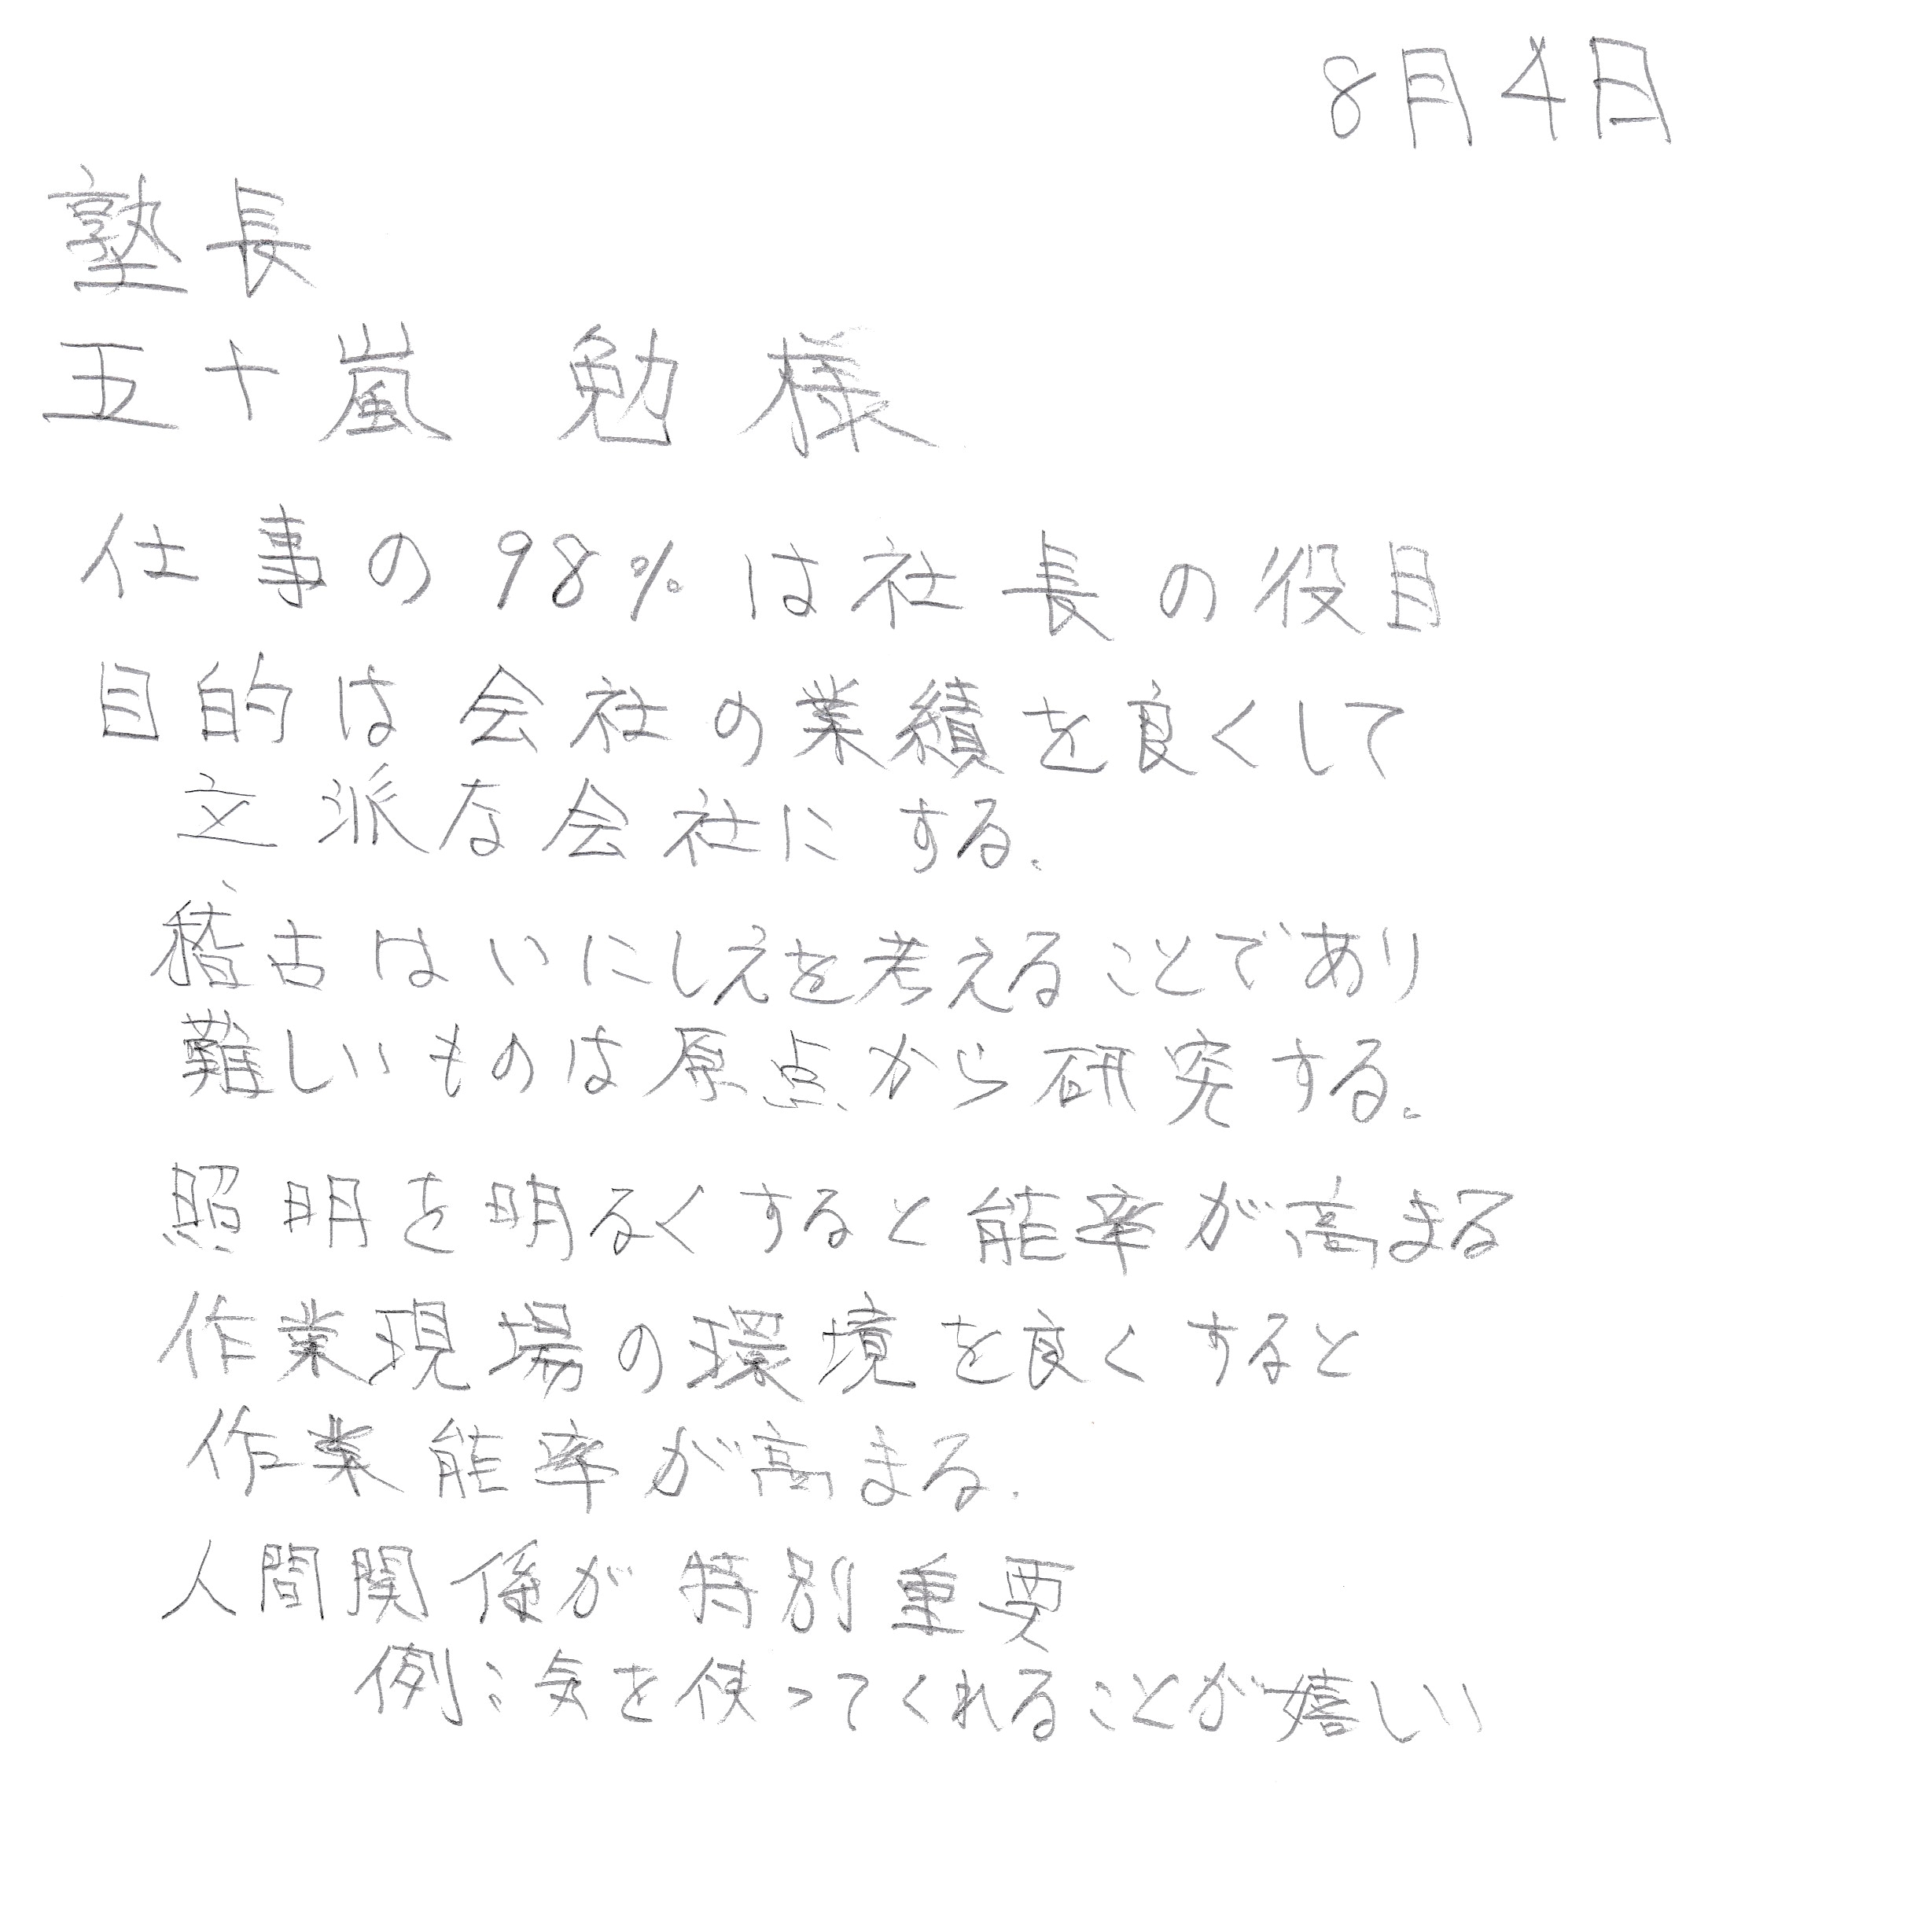 8月4日
塾長
五十嵐 勉 様
仕事の98%は社長の役目
目的は会社の業績を良くして
立派な会社にする。
稽古はいにしえを考えることであり
難しいものは原点から研究する。
照明を明るくすると能率が高まる
作業現場の環境を良くすると
作業能率が高まる.
人間関係が特別重要
例:気を使ってくれることが嬉しい